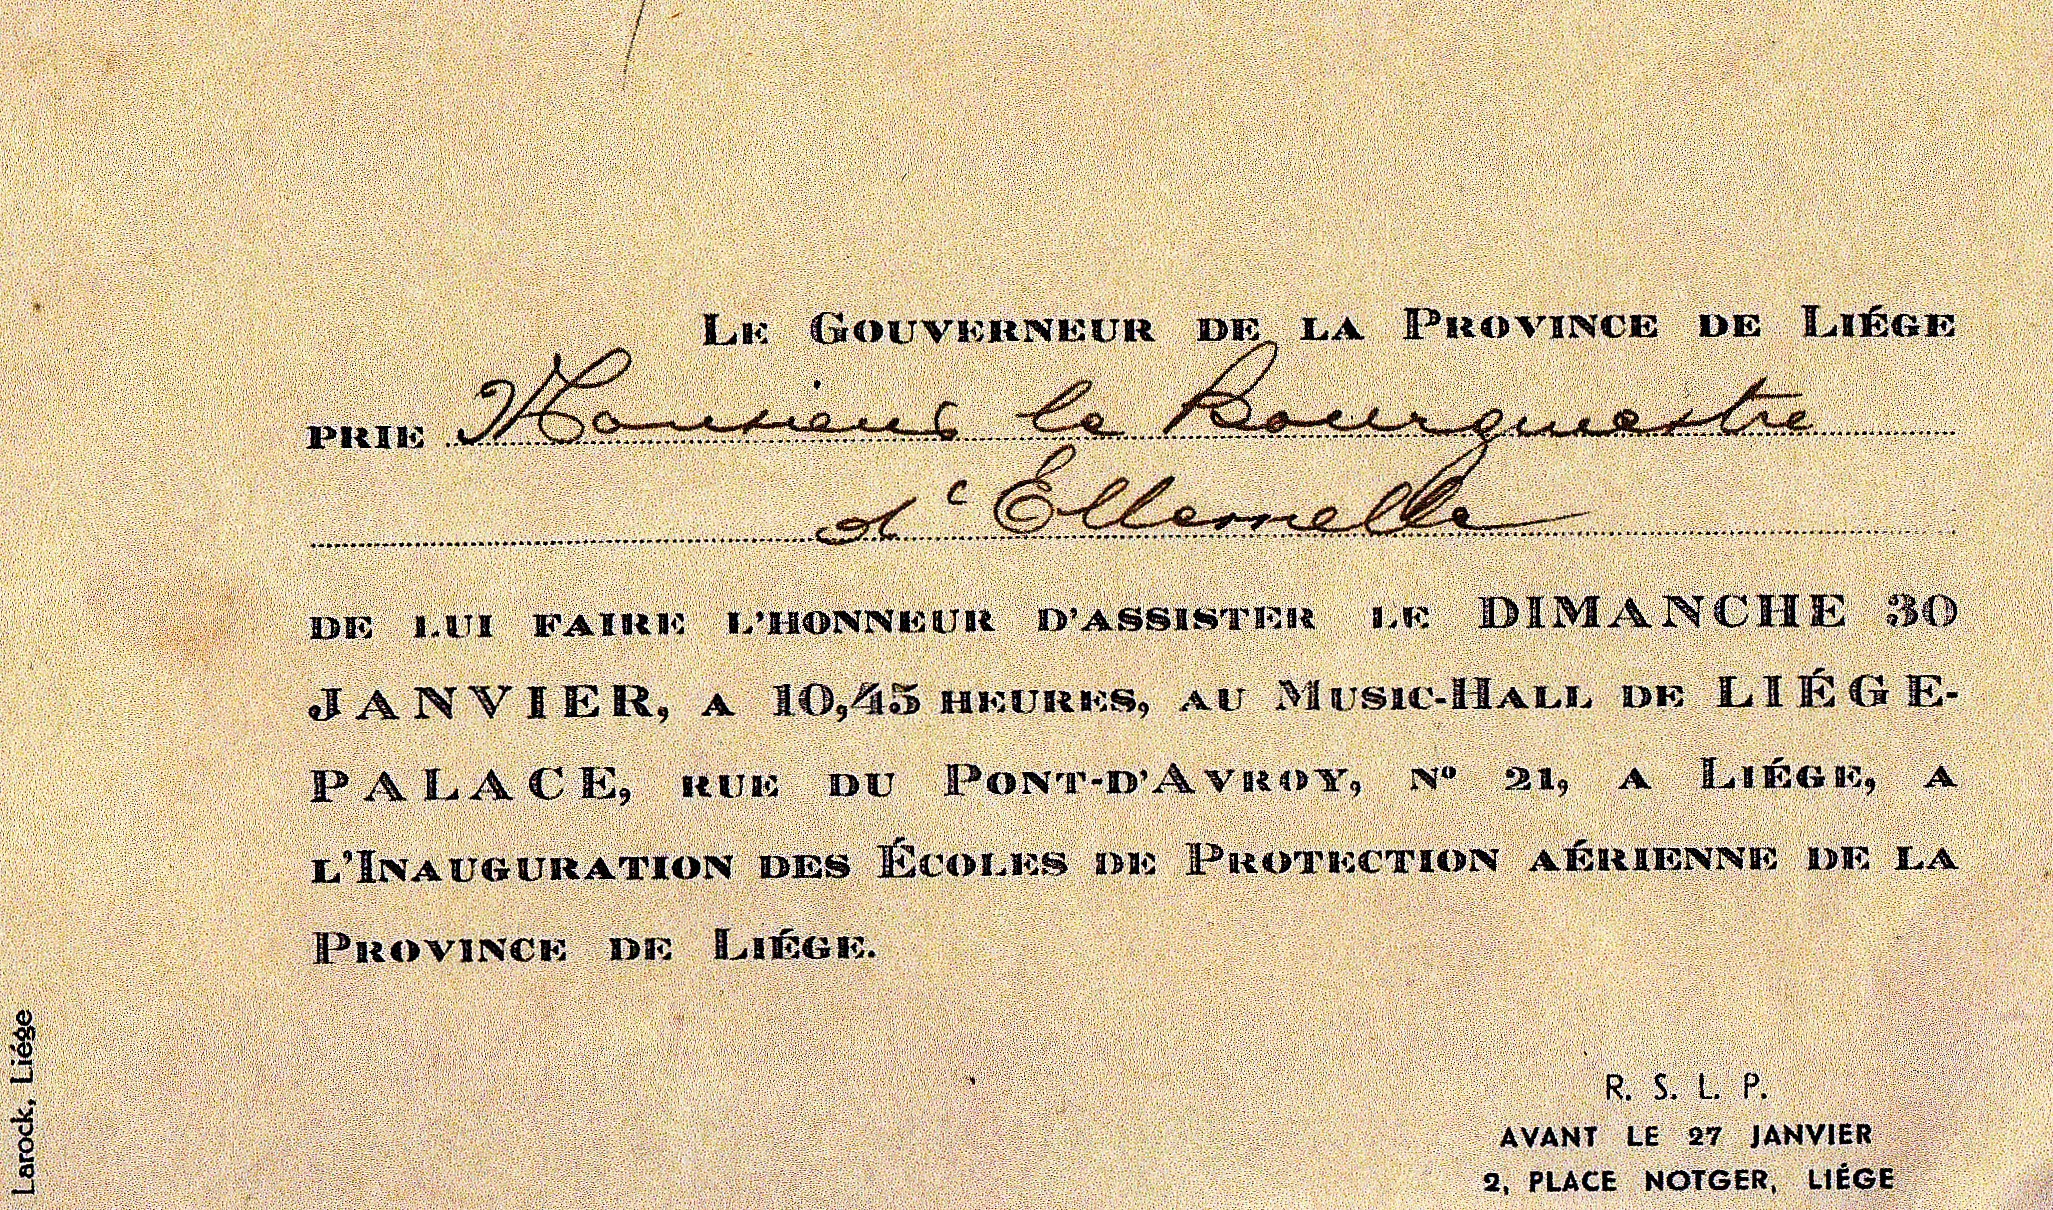 LE GOUVERNEUR DE LA PROVINCE DE LIÉGE
PRIE Monsieur le Bourgmestre
d'Ellemelle
DE LUI FAIRE L'HONNEUR D'ASSISTER LE DIMANCHE 30
JANVIER, A 10,45 HEURES, AU MUSIC-HALL DE LIÉGE-
PALACE, RUE DU PONT-D'AVROY, Nº 21, A LIÉGE, A
L'INAUGURATION DES ÉCOLES DE PROTECTION AÉRIENNE DE LA
PROVINCE DE LIÉGE.
R. S. L. P.
AVANT LE 27 JANVIER
2, PLACE NOTGER, LIÉGE
Larock, Liége